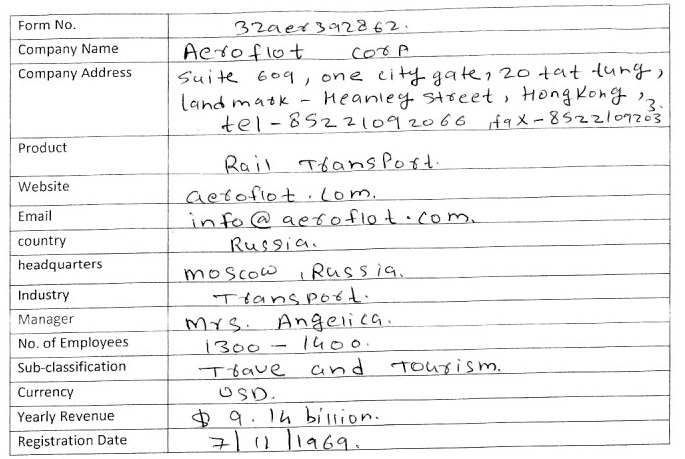 Form No. 32aer392862.
Company Name Aeroflot corp
Company Address Suite 609, one city gate, 20 tat tung,
landmark - Heanley street, HongKong,
tel-85221092066, fax-85221092033.
Product Rail Transport.
Website aeroflot.com.
Email info@aeroflot.com.
country Russia.
headquarters moscow, Russia.
Industry Transport.
Manager Mrs. Angelica.
No. of Employees 1300 - 1400.
Sub-classification Trave and Tourism.
Currency USD.
Yearly Revenue $ 9.14 billion.
Registration Date 7/11/1969.